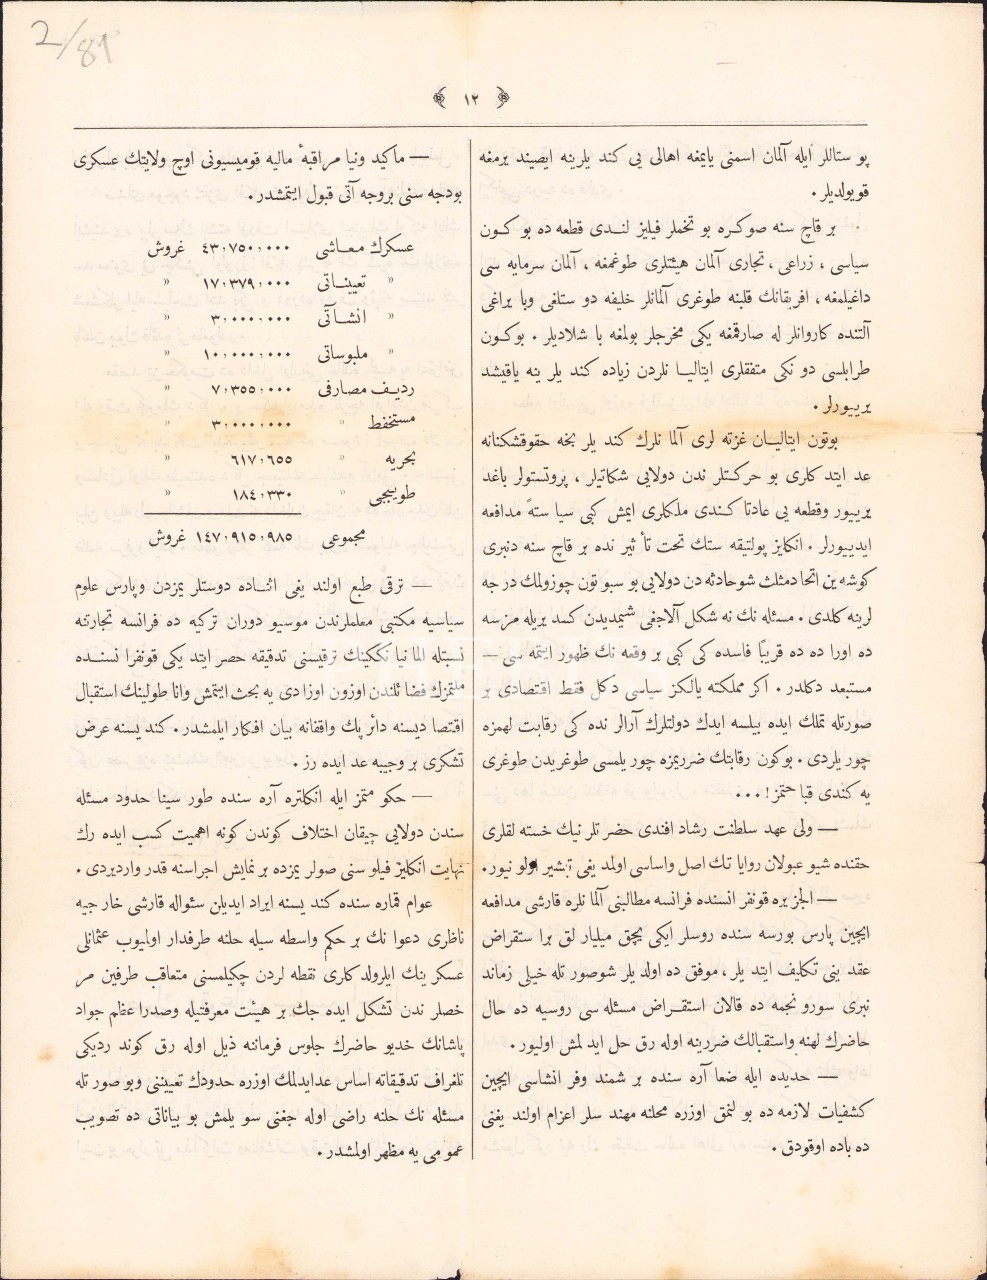 2/89
١٢
پوستاللر ایله آلمان اسمنی یایمغه اهالی یی کند یلرینه ایصیند یرمغه
قویولدیلر.
بر قاچ سنه صوکره بو تخملر فیلیز لندی قطعه ده بو کون
سیاسی ، زراعی ، تجاری آلمان هیئتلری طوغمغه ، آلمان سرمایه سی
داغیلمغه ، افریقانك قلبنه طوغری آلمانلر خلیفه دو ستلغی وبا یراغی
آلتنده کاروانلر له صارقمغه یکی مخرجلر بولمغه با شلادیلر . بوکون
طرابلسی دو نکی متفقلری ایتالیا نلردن زیاده کند یلر ینه یاقیشد
یرییورلر .
بوتون ایتالیان غزته لری آلما نلرك کند یلر بخه حقوقشکنانه
عد ایتد کلری بو حرکتلر ندن دولایی شکاتیلر ، پروتستولر یاغد
یرییور وقطعه یی عادتا کندی ملکلری ایمش کبی سیا سةً مدافعه
ایدییورلر . انکلیز پولتیقه سنك تحت تأ ثیر نده بر قاچ سنه دنبری
کوشه ین اتحا دمثلث شوحادثه دن دولایی بو سبو تون چوزولمك در جه
لرینه کلدی . مسئله نك نه شکل آلاجغی شیمدیدن کسد یریله مزسه
ده اورا ده ده قریبًا فاسده کی کبی بر وقعه نك ظهور ایتمه سی —
مستبعد دکلدر . اکر مملکته یالکز سیاسی دکل فقط اقتصادی بر
صورتله تملك ایده بیلسه ایدك دولتلرك آرالر نده کی رقابت لهمزه
چور یلردی . بوکون رقابتك ضرریمزه چور یلمسی طوغریدن طوغری
یه کندی قبا حتمز ! ...
— ولی عهد سلطنت رشاد افندی حضر تلر نیك خسته لقلری
حقنده شیو عبولان روایا تك اصل واساسی اولمد یغی تبشیر اولو نیور.
— الجز یره قونفر انسنده فرانسه مطالبنی آلما نلره قارشی مدافعه
ایچین پارس بورسه سنده روسلر ایکی یچق میلیار لق برا ستقراض
عقد ینی تکلیف ایتد یلر ، موفق ده اولد یلر شوصور تله خیلی زماند
نبری سورو نجمه ده قالان استقراض مسئله سی روسیه ده حال
حاضرك لهنه واستقبالك ضررینه اوله رق حل اید لمش اولیور .
— حدیده ایله ضعا آره سنده بر شمند وفر انشاسی ایچین
کشفیات لازمه ده بو لنمق اوزره محلنه مهند سلر اعزام اولند یغنی
ده باده اوقودق .
— مأکید ونیا مراقبهٔ مالیه قومیسیونی اوچ ولایتك عسکری
بودجه سنی بروجه آتی قبول ایتمشدر.
عسکرك معاشی ٤٣٬٧٥٠٬٠٠٠ غروش
« تعییناتی ١٧٬٣٧٩٬٠٠٠ «
« انشآتی ٣٬٠٠٠٬٠٠٠ «
« ملبوساتی ١٠٬٠٠٠٬٠٠٠ «
ردیف مصارفی ٧٬٣٥٥٬٠٠٠ «
مستحفظ « ٣٬٠٠٠٬٠٠٠ «
بحریه « ٦١٧٬٦٥٥ «
طوپجی « ١٨٤٬٣٣٠ «
مجموعی ١٤٧٬٩١٥٬٩٨٥ غروش
— ترقی طبع اولند یغی اثناده دوستلر یمزدن وپارس علوم
سیاسیه مکتبی معلملرندن موسیو دوران ترکیه ده فرانسه تجارتنه
نسبتله المانیا نککینك ترقیسنی تدقیقه حصر ایتد یکی قونفرا نسنده
ملتمزك فضا ئلندن اوزون اوزا دی یه بحث ایتمش وانا طولینك استقبال
اقتصا دیسنه دائر پك واقفانه بیان افکار ایلمشدر . کند یسنه عرض
تشکری بر وجیبه عد ایده رز .
— حکو متمز ایله انکلتره آره سنده طور سینا حدود مسئله
سندن دولایی چیقان اختلاف کوندن کونه اهمیت کسب ایده رك
نهایت انکلیز فیلو سنی صولر یمزده بر نمایش اجراسنه قدر واردیردی .
عوام قماره سنده کند یسنه ایراد ایدیلن سئواله قارشی خارجیه
ناظری دعوا نك بر حکم واسطه سیله حلنه طرفدار اولمیوب عثمانلی
عسکر ینك ایلرولد کلری نقطه لردن چکیلمسنی متعاقب طرفین مر
خصلر ندن تشکل ایده جك بر هیئت معرفتیله وصدرا عظم جواد
پاشانك خدیو حاضرك جلوس فرماننه ذیل اوله رق کوند ردیکی
تلغراف تدقیقاته اساس عدایدلمك اوزره حدودك تعییننی وبو صور تله
مسئله نك حلنه راضی اوله جغنی سو یلمش بو بیاناتی ده تصویب
عمو می یه مظهر اولمشدر .